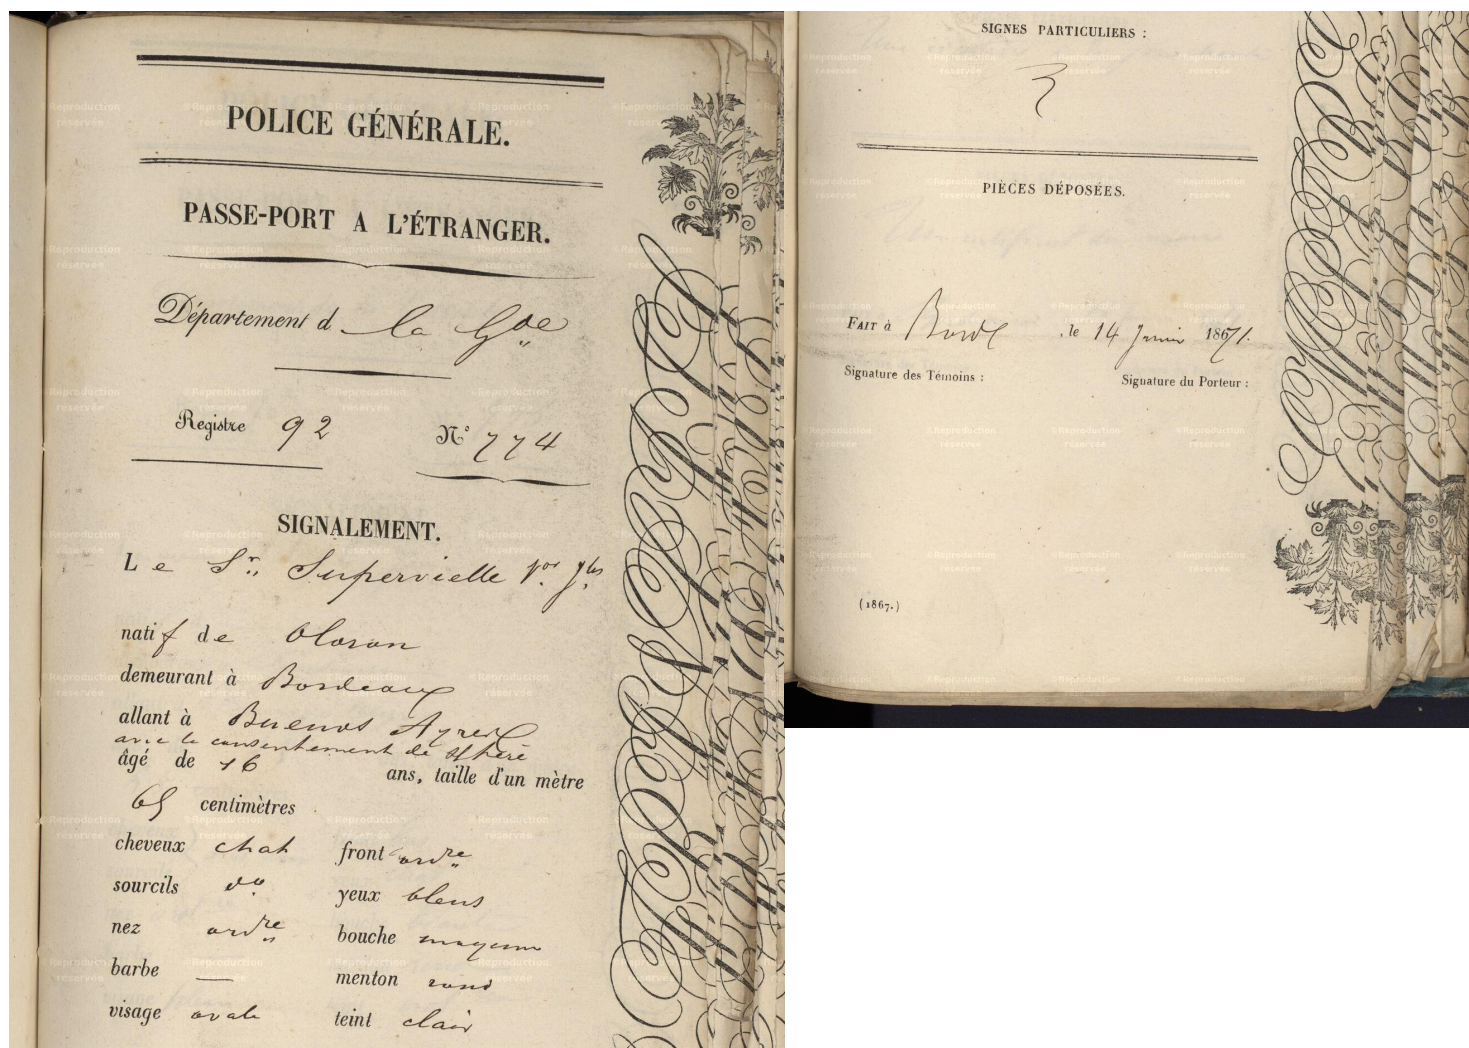 POLICE GÉNÉRALE.
PASSE-PORT A L'ÉTRANGER.
Département d la Gde
Registre 92 N° 774
SIGNALEMENT.
Le Sr. Supervielle
natif de Oloron
demeurant à Bordeaux
allant à Buenos Ayres
avec le consentement de
âgé de 16 ans, taille d'un mètre
65 centimètres
cheveux chat front ordre
sourcils do yeux bleus
nez ordre bouche moyenne
barbe — menton rond
visage ovale teint clair
SIGNES PARTICULIERS :
PIÈCES DÉPOSÉES.
FAIT à Bordx, le 14 1871.
Signature des Témoins : Signature du Porteur :
(1867.)
©Reproduction réservée